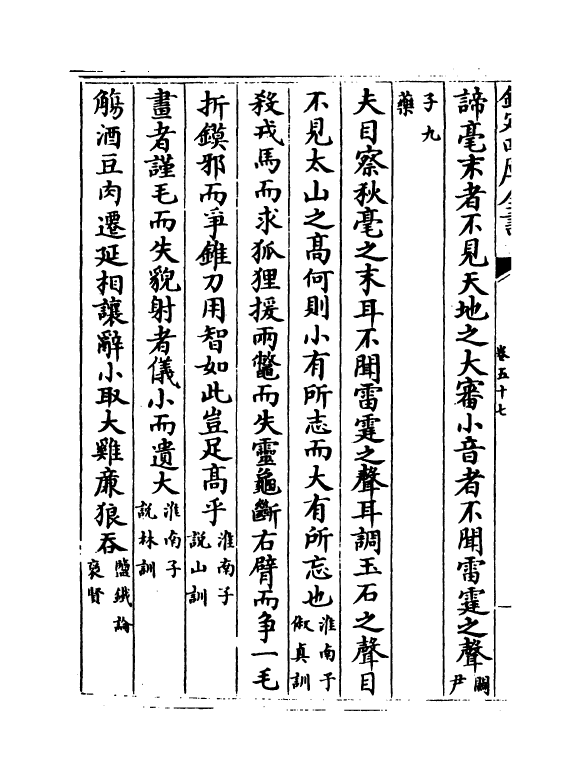 欽定四庫全書
卷五十七
諦毫末者不見天地之大審小音者不聞雷霆之聲關尹
子九藥
夫目察秋毫之末耳不聞雷霆之聲耳調玉石之聲目
不見太山之髙何則小有所志而大有所忘也淮南子俶真訓
殺戎馬而求狐狸援兩鼈而失靈龜斷右臂而争一毛
折鏌邪而爭錐刀用智如此豈足髙乎淮南子說山訓
畫者謹毛而失貌射者儀小而遺大淮南子說林訓
觴酒豆肉遷延相讓辭小取大雞廉狼吞鹽鐵論襃賢